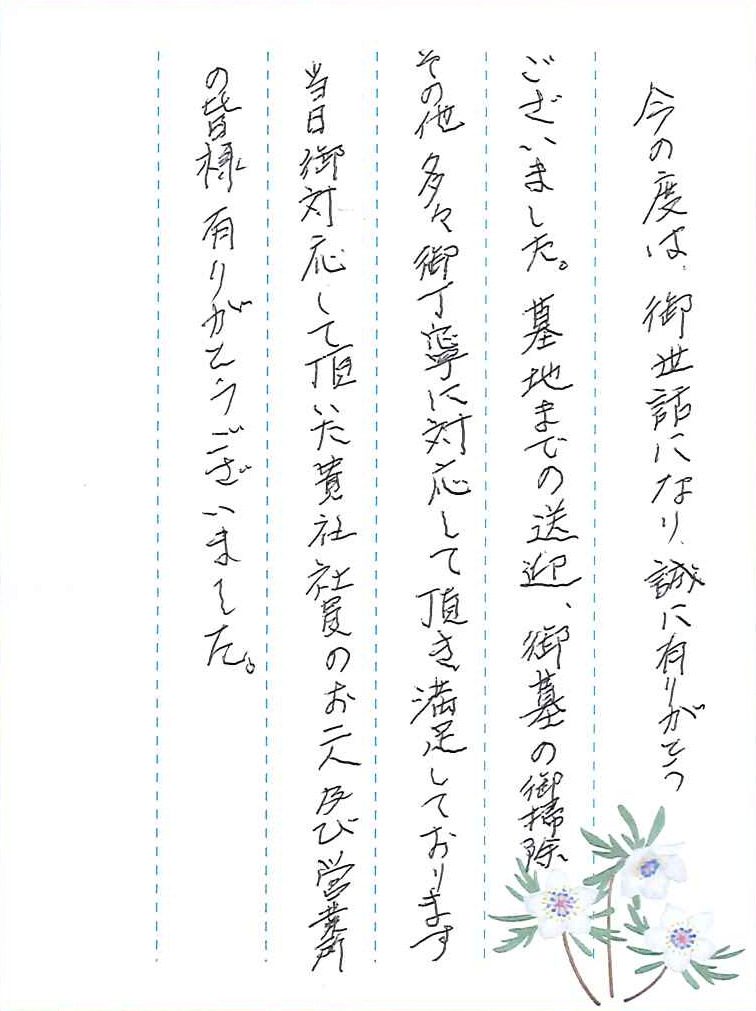 今の度は、御世話になり、誠に有りがとう
ございました。墓地までの送迎、御墓の御掃除、
その他 多々御丁寧に対応して頂き満足しております
当日御対応して頂いた貴社社員のお二人及び営業所
の皆様 有りがとうございました。